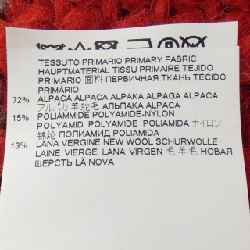 TESSUTO PRIMARIO PRIMARY FABRIC
HAUPTMATERIAL TISSU PRIMAIRE TEJIDO
PRIMARIO 面料 ПЕРВИЧНАЯ ТКАНЬ TECIDO
PRIMÁRIO
72% ALPACA ALPACA ALPAKA ALPAGA ALPACA
羊驼毛 АЛЬПАКА ALPACA
15% POLIAMMIDE POLYAMIDE-NYLON
POLYAMID POLYAMIDE POLIAMIDA ナイロン
锦纶 ПОЛИАМИД POLIAMIDA
13% LANA VERGINE NEW WOOL SCHURWOLLE
LAINE VIERGE LANA VIRGEN 毛 羊毛 НОВАЯ
ШЕРСТЬ LÃ NOVA